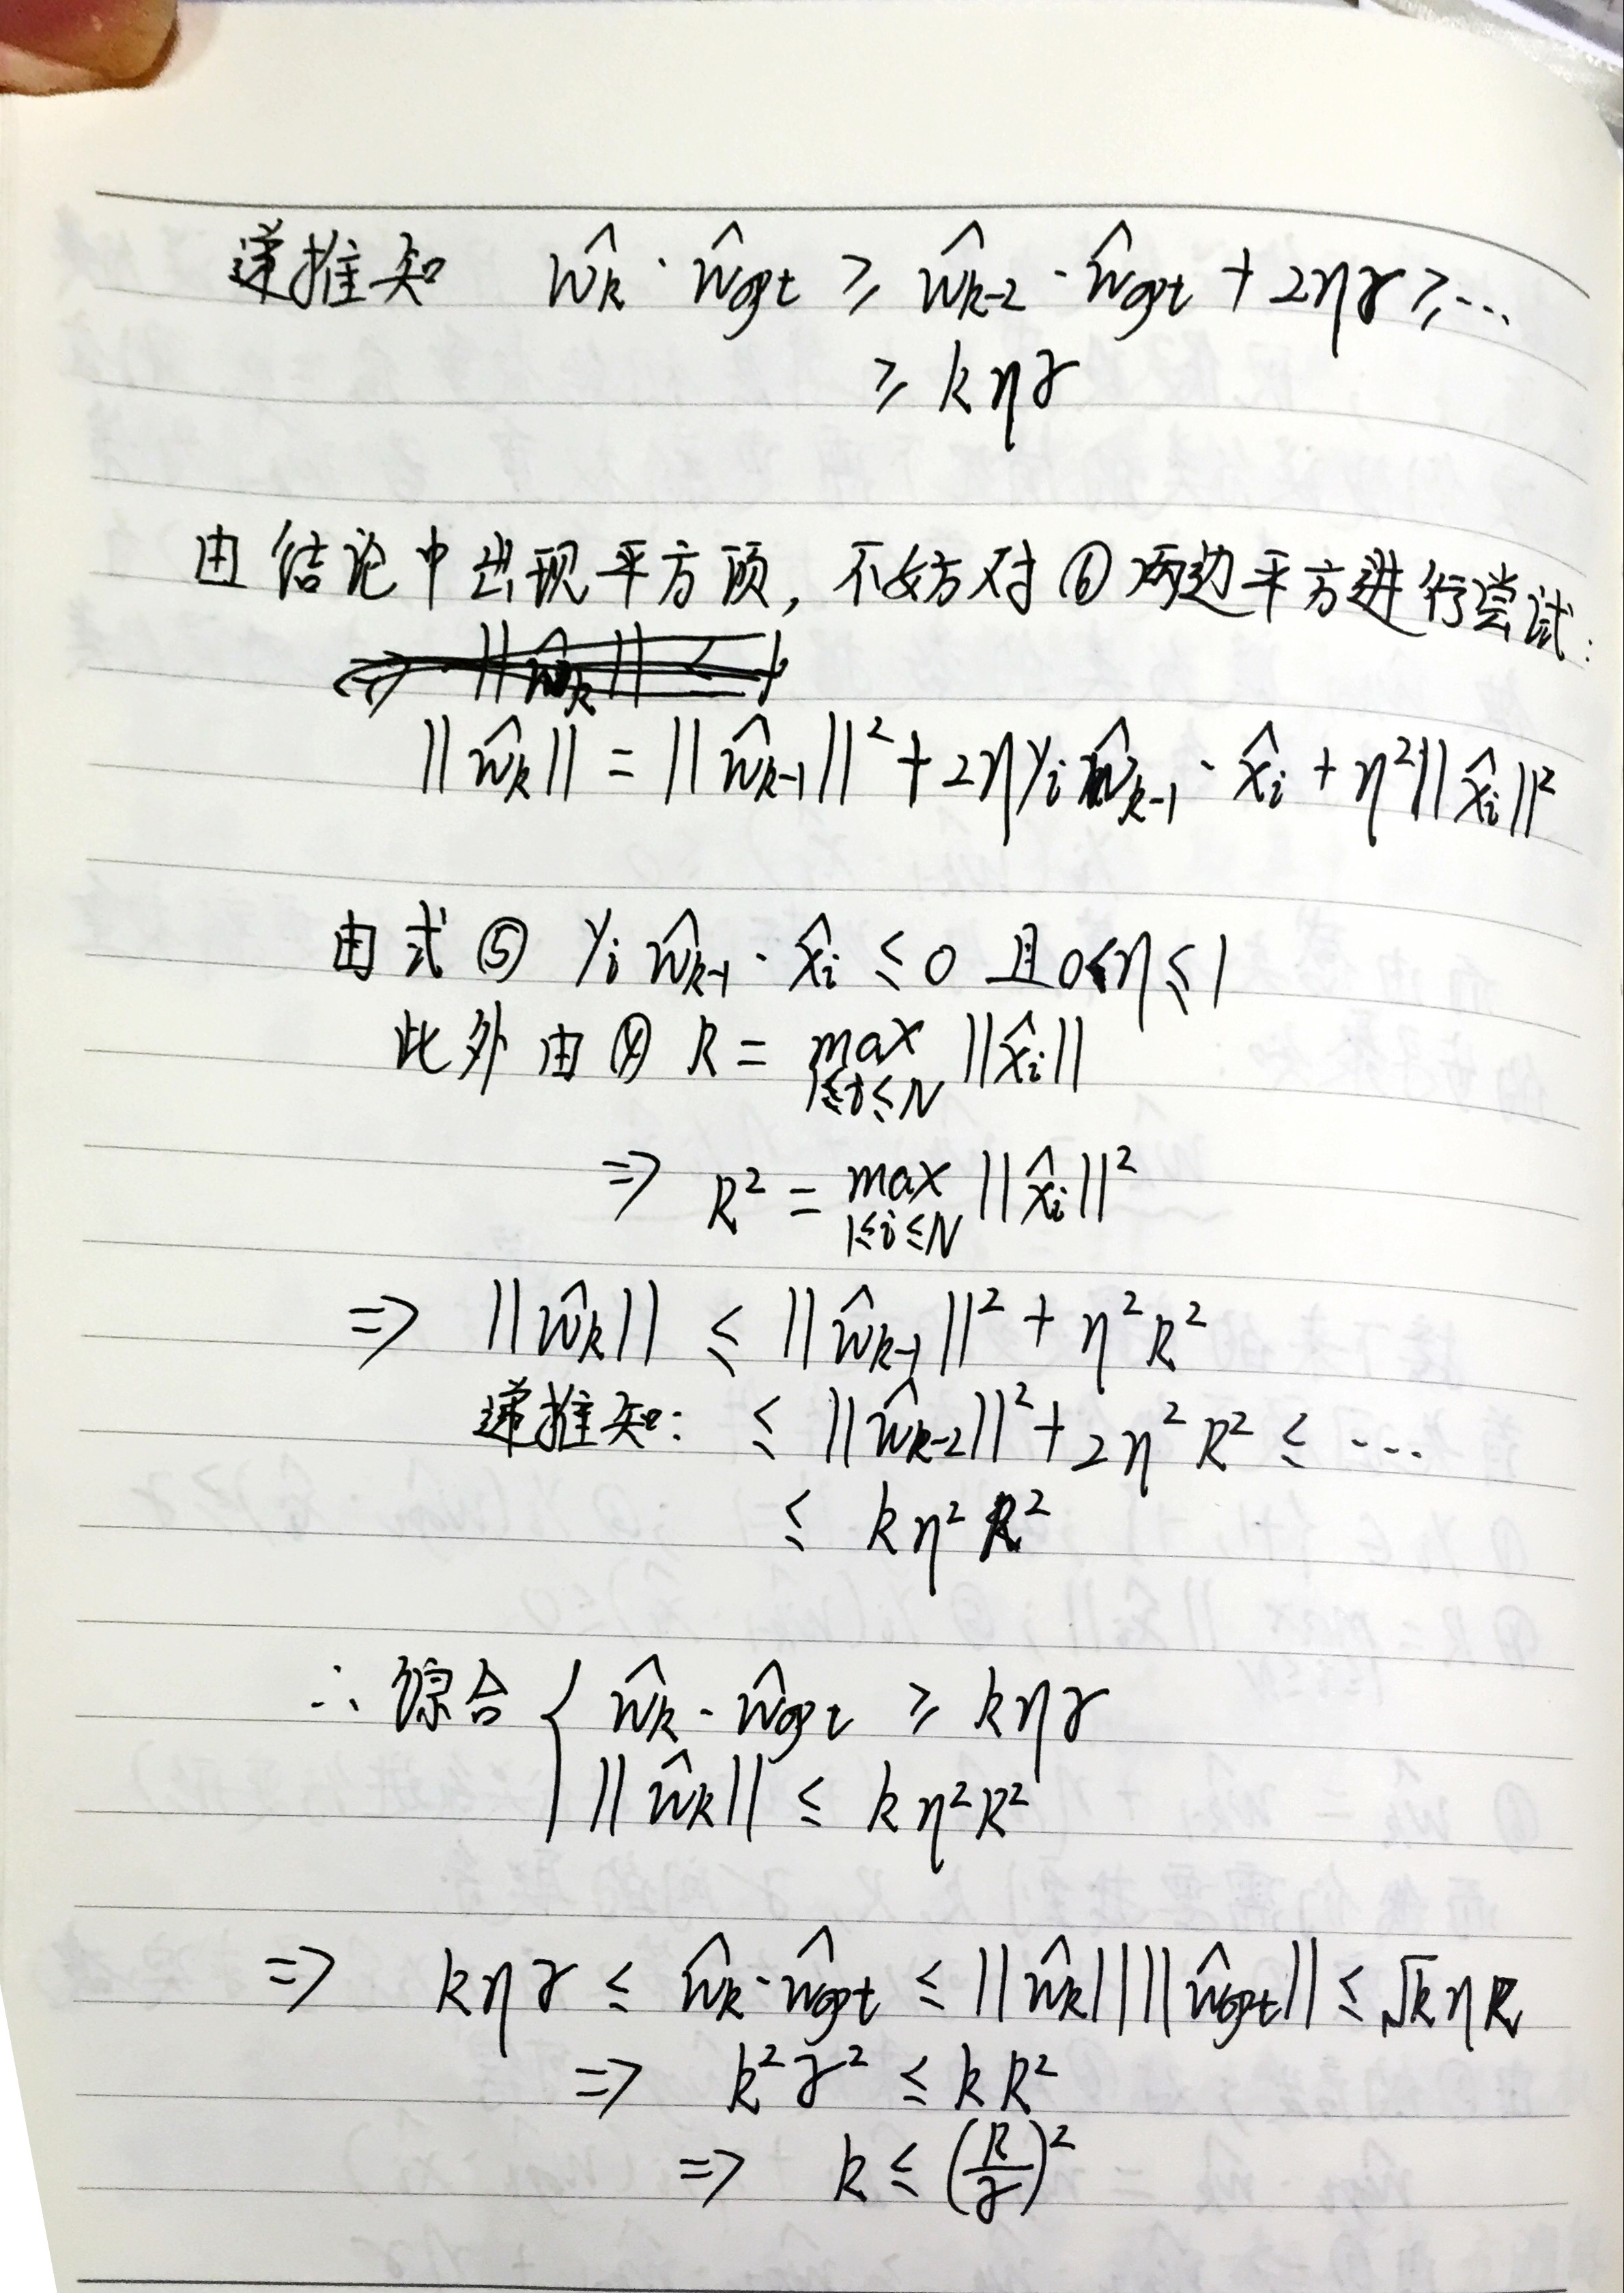 递推知 ŵk · ŵopt ≥ ŵk-2 · ŵopt + 2ηγ ≥ ···
≥ kηγ
由结论中出现平方项, 不妨对 ⑥ 两边平方进行尝试:
||ŵk|| = ||ŵk-1||² + 2ηyiŵk-1 · x̂i + η²||x̂i||²
由式 ⑤ yi ŵk-1 · x̂i ≤ 0 且 0<η≤1
此外由 ④ R = max ||x̂i||
1≤i≤N
⇒ R² = max ||x̂i||²
1≤i≤N
⇒ ||ŵk|| ≤ ||ŵk-1||² + η²R²
递推知: ≤ ||ŵk-2||² + 2η²R² ≤ ···
≤ kη²R²
∴ 综合 { ŵk · ŵopt ≥ kηγ
||ŵk|| ≤ kη²R²
⇒ kηγ ≤ ŵk · ŵopt ≤ ||ŵk|| ||ŵopt|| ≤ √kηR
⇒ k²γ² ≤ kR²
⇒ k ≤ (R/γ)²